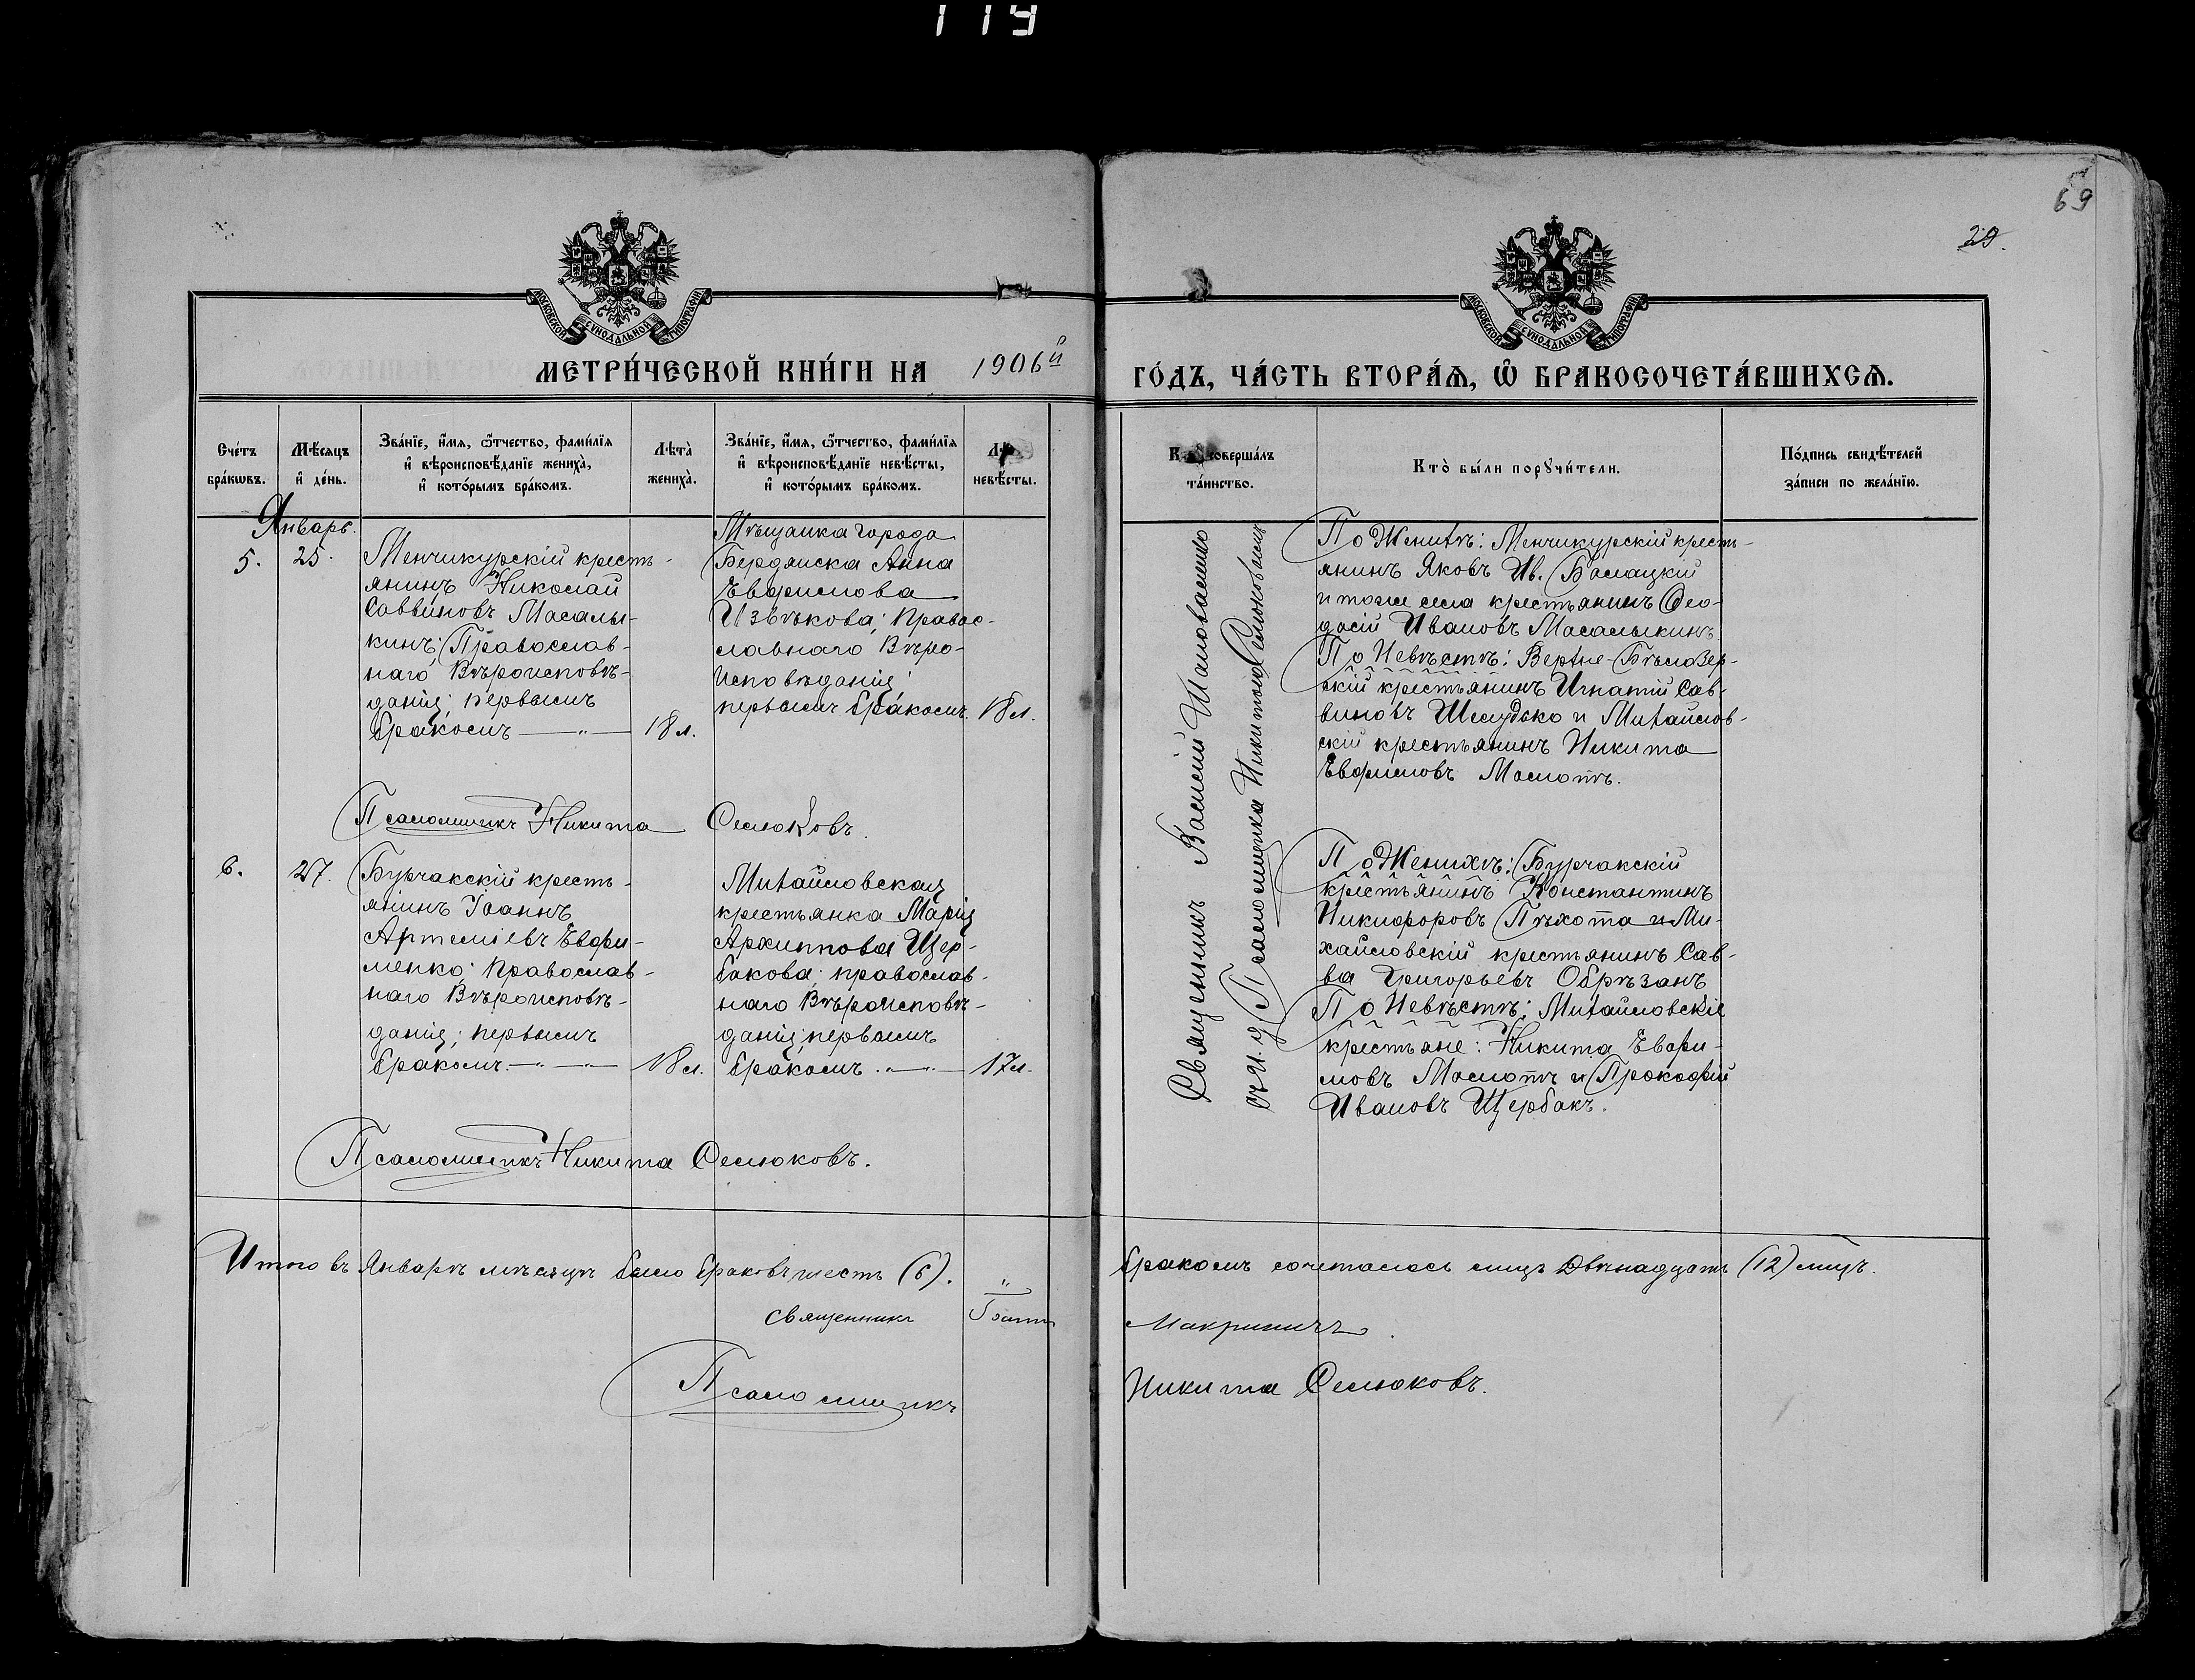 119
69
20.
МОСКОВСКОЙ СѴНОДАЛЬНОЙ ТИПОГРАФІИ
МОСКОВСКОЙ СѴНОДАЛЬНОЙ ТИПОГРАФІИ
МЕТРИ́ЧЕСКОЙ КНИ́ГИ НА 1906й ГО́ДЪ, ЧА́СТЬ ВТОРА́Ѧ, Ѡ҆ БРАКОСОЧЕТА́ВШИХСѦ.
Сче́тъ
бра́кѡвъ.
Мѣ́сѧцъ
и҆ де́нь.
Зва́нїе, и҆́мѧ, ѻ҆́тчество, фами́лїѧ
и҆ вѣроисповѣ́данїе жениха̀,
и҆ кото́рымъ бра́комъ.
Лѣта̀
жениха̀.
Зва́нїе, и҆́мѧ, ѻ҆́тчество, фами́лїѧ
и҆ вѣроисповѣ́данїе невѣ́сты,
и҆ кото́рымъ бра́комъ.
невѣ́сты.
совершáлъ
та́инство.
Кто̀ бы́ли порꙋчи́тели.
По́дпись свидѣ́телей
за́писи по жела́нїю.
Январь.
5.
25.
Менчикурскій кресть-
янинъ Николай
Саввиновъ Масалы-
кинъ; Православ-
наго Вѣроисповѣ-
данія; первымъ
бракомъ —"—
18 л.
Мѣщанка города
Бердянска Анна
Ѣвфимова
Извѣкова; Правос-
лавнаго Вѣро-
исповѣданія;
первымъ бракомъ.
18 л.
Священникъ Василій
съ и. д. Псаломщика Никитою Семюковымъ
По Жениѳѣ: Менчикурскій кресть-
янинъ Яковъ Ив.
и тогже села крестьянинъ Ѳео-
досій Ивановъ Масалыкинъ
По Невѣстѣ: Верѳне-Бѣлозер-
скій крестьянинъ Игнатій Сав-
виновъ Шелудько и Миѳайлов-
скій крестьянинъ Никита
Ѣвфимовъ
Псаломщикъ Никита Семюковъ.
6.
27.
Бурчакскій кресть-
янинъ Іоаннъ
Артеміевъ Ѣвфи-
менко; Православ-
наго Вѣроисповѣ-
данія; первымъ
бракомъ —"— —"—
18 л.
Миѳайловская
крестьянка Марія
Архиппова Щер-
бакова; православ-
наго Вѣроисповѣ-
данія; первымъ
бракомъ. —"—
17 л.
По Женихѣ: Бурчакскій
крестьянинъ Константинъ
Никифоровъ Пѣхота и Ми-
хайловскій крестьянинъ Сав-
ва Григорьевъ Обрѣзанъ
По Невѣстѣ: Миѳайловскіе
крестьяне: Никита Ѣвфи-
мовъ и Прокофій
Ивановъ Щербакъ.
Псаломщикъ Никита Семюковъ.
Итого въ Январѣ мѣсяцѣ было браковъ шесть (6). " бракомъ сочеталось лицъ Двѣнадцать (12) лицъ.
священникъ
Псаломщикъ Никита Семюковъ.